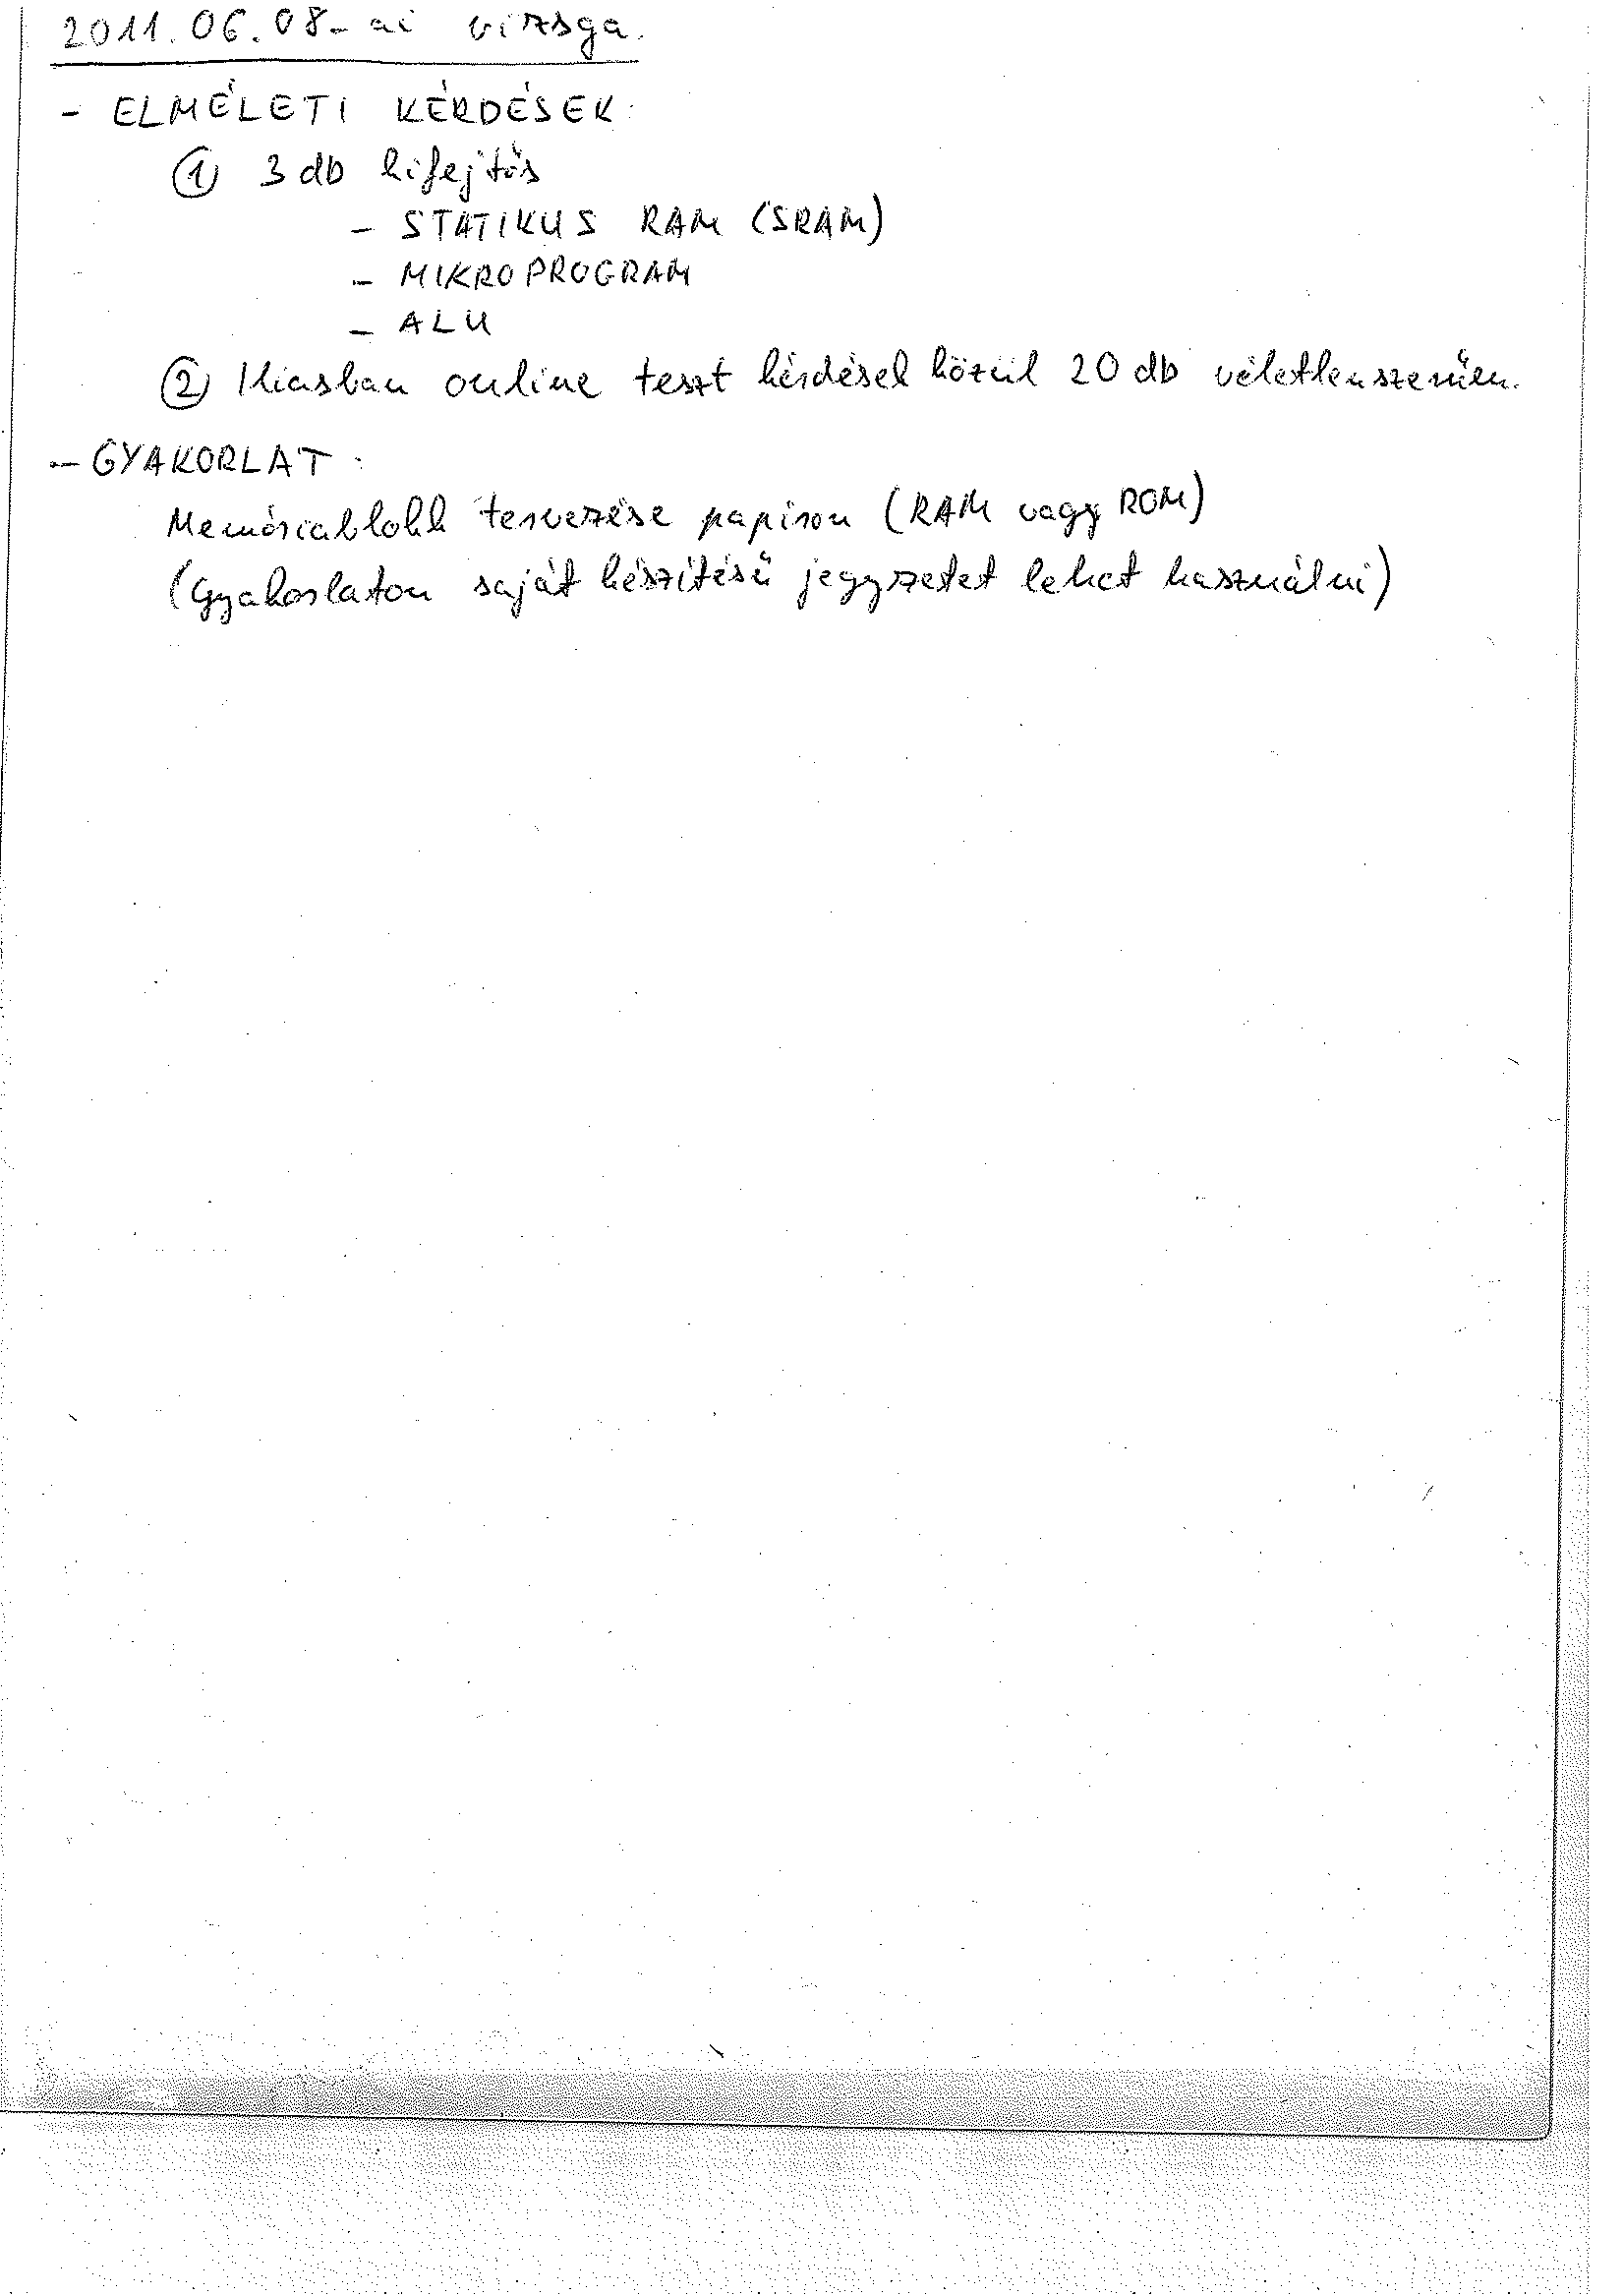 2011.06.08-ai vizsga.
- ELMÉLETI KÉRDÉSEK:
① 3 db kifejtős
- STATIKUS RAM (SRAM)
- MIKROPROGRAM
- ALU
② Iliasban online teszt kérdések közül 20 db véletlenszerűen.
- GYAKORLAT:
Memóriablokk tervezése papíron (RAM vagy ROM)
(Gyakorlaton saját készítésű jegyzetet lehet használni)